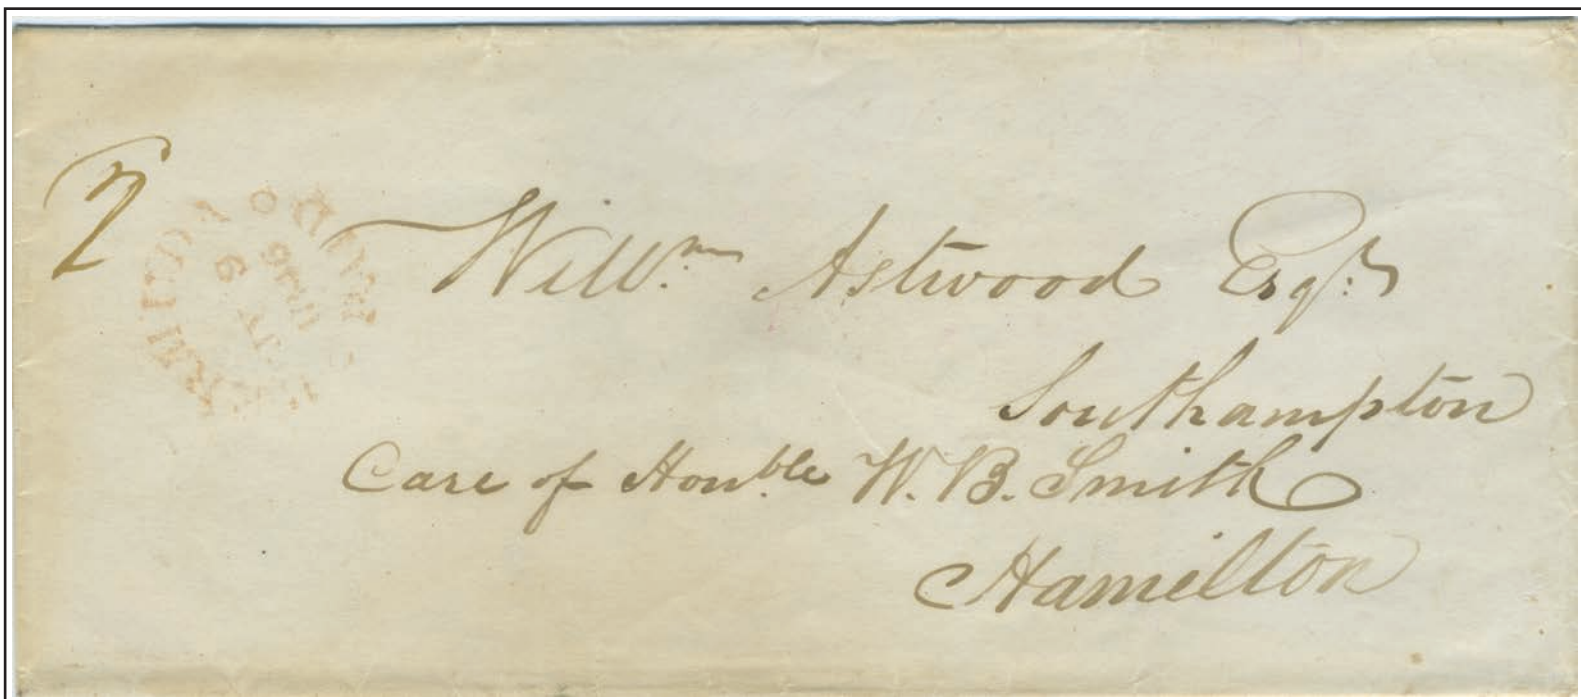 2
Willm. Astwood Esqr.
Southampton
Care of Honble W. B. Smith
Hamilton